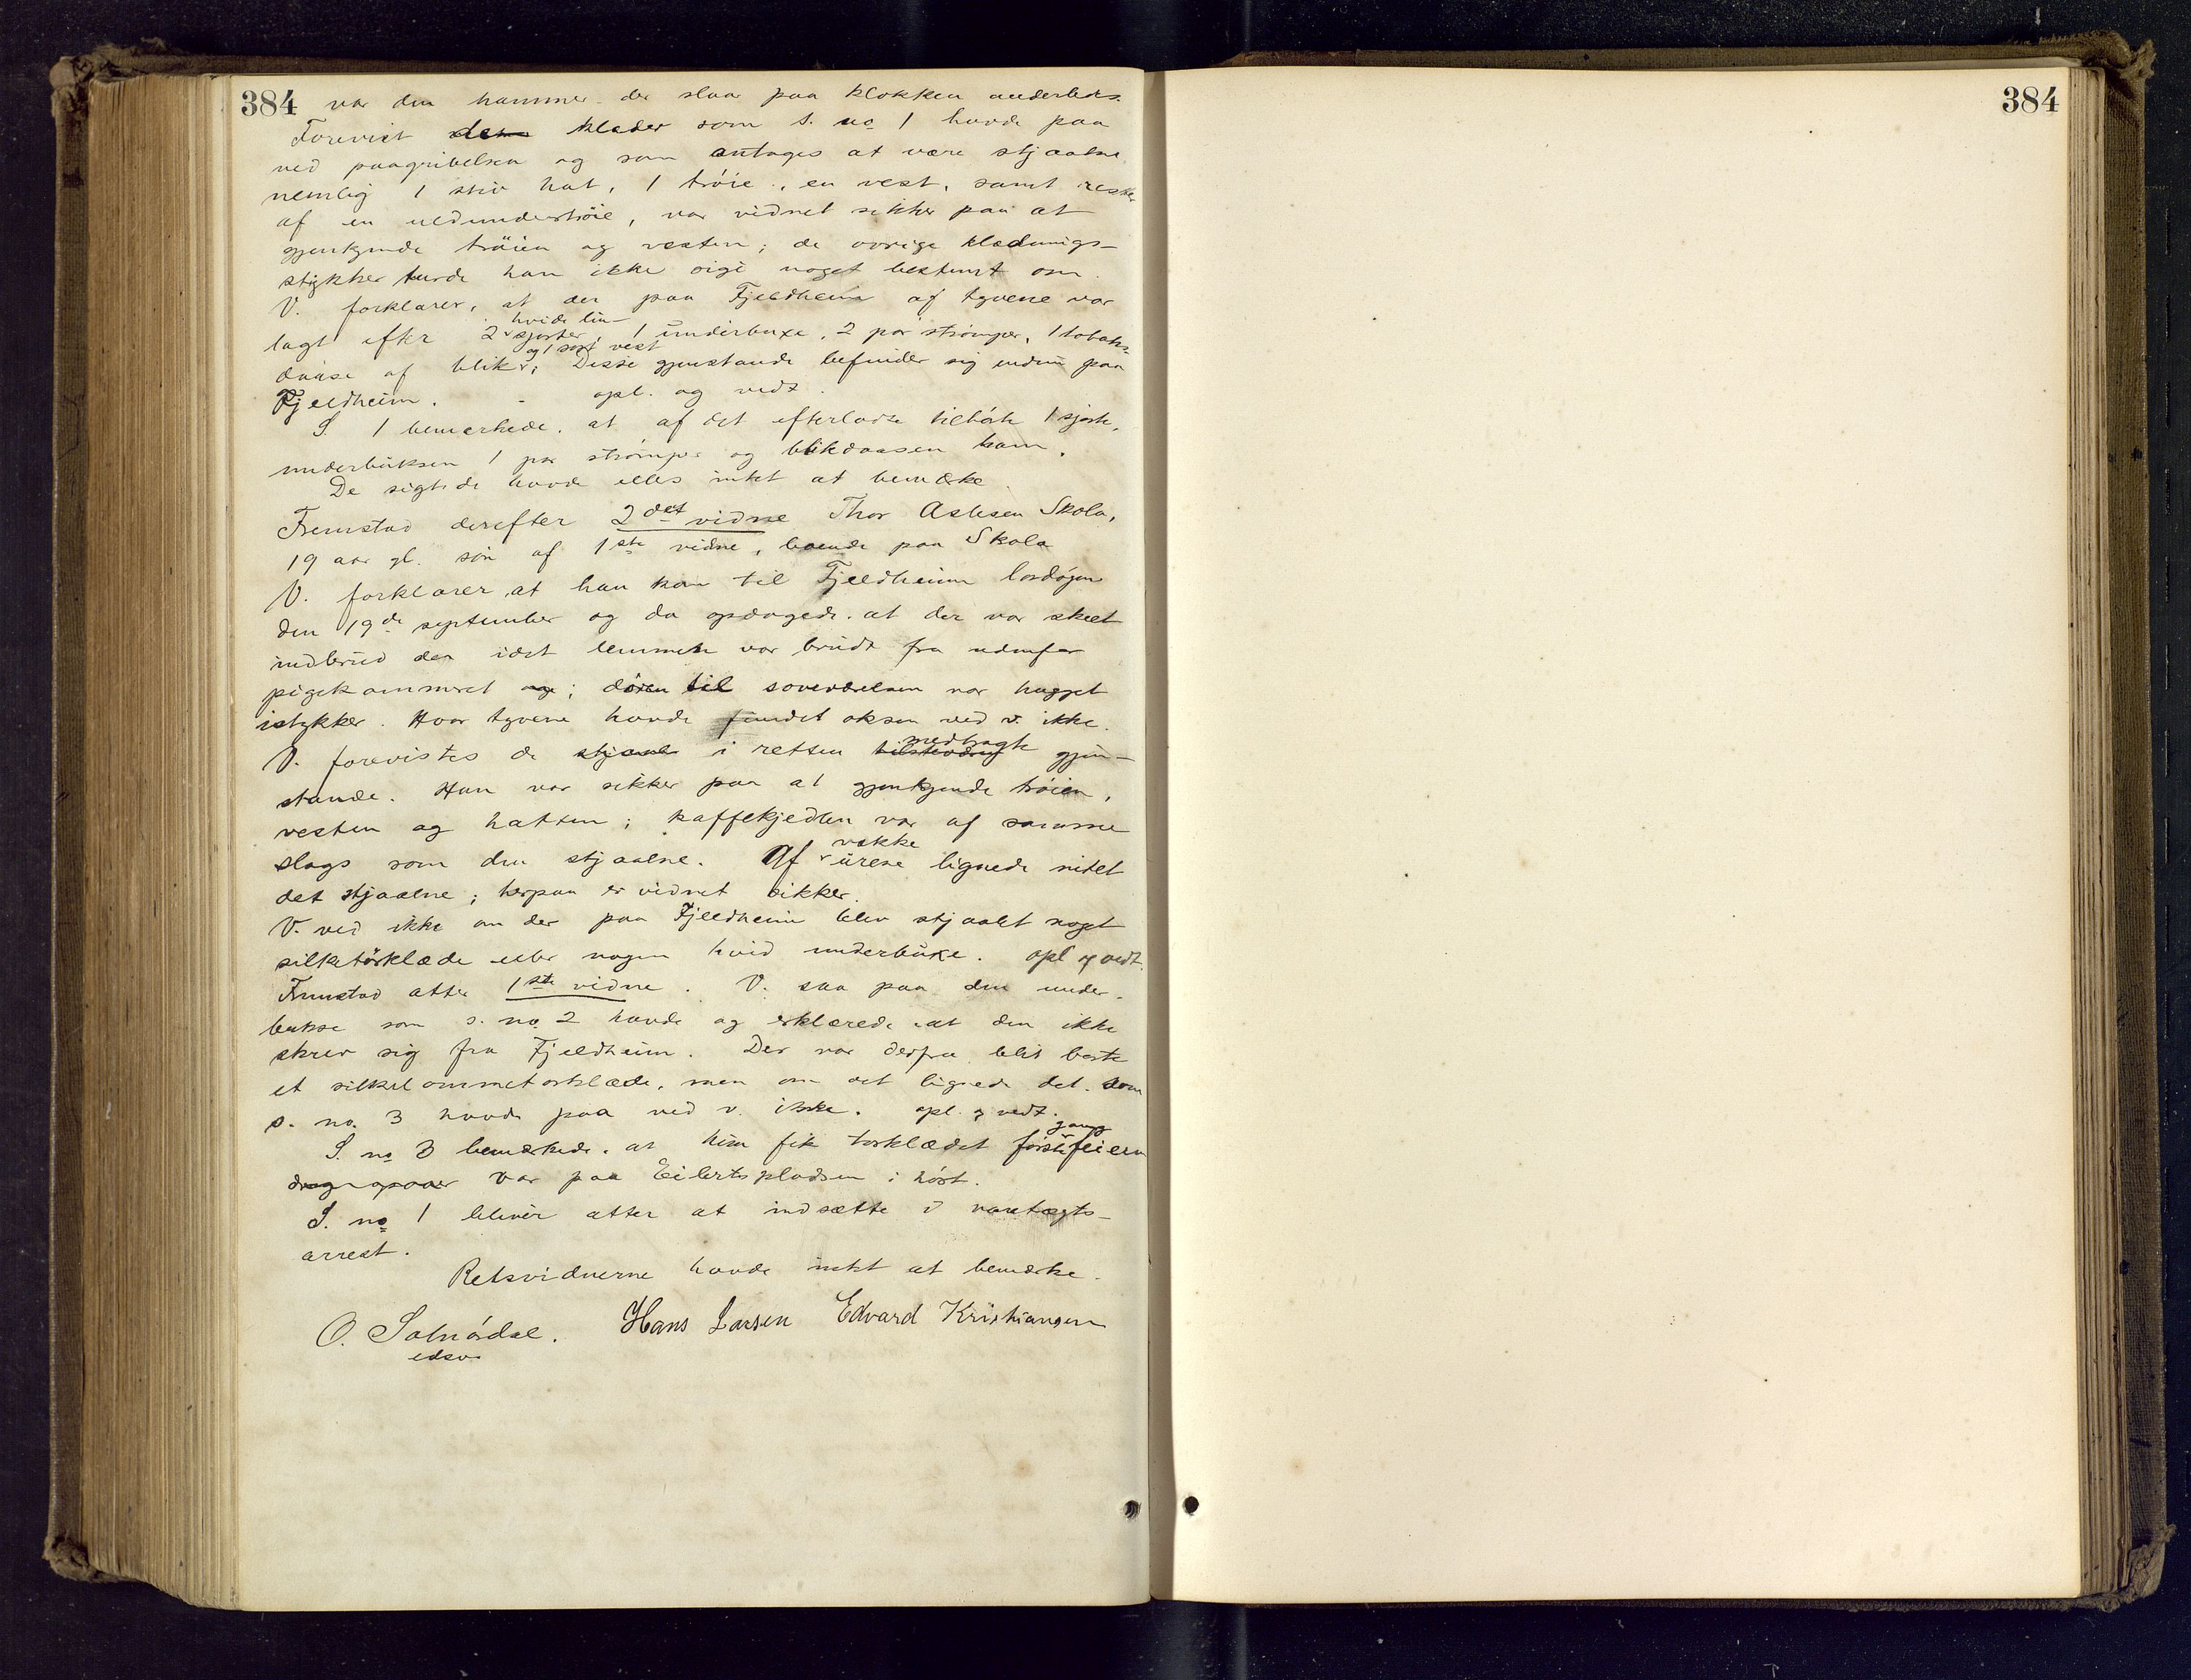 384 var den hammer der slaar paa klokken anderledes.
Forevist den klæder som s. no 1 havde paa
ved paagribelsen og som antages at være stjaalne
nemlig 1 stiv hat, 1 tröie, en vest, samt rester
af en uldundertröie, var vidnet sikker paa at
gjenkjende tröien og vesten; de övrige klædnings-
stykker turde han ikke sige noget bestemt om.
V. forklarer, at der paa Fjeldheim af tyvene var
hvide lin-
lagt efter 2 sjorter, 1 underbuxe, 2 par strömper, 1 tobaks-
og 1 sort vest
daase af blik; Disse gjenstande befinder sig endnu paa
Fjeldheim. - opl. og vedt.
S. 1 bemærkede, at af det efterladte tilhörte 1 sjorte,
underbuksen 1 par strömper og blikdaasen ham.
De sigtede havde ellers intet at bemærke.
Fremstod derefter 2det vidne Thor Aslesen Skola,
19 aar gl. sön af 1ste vidne, boende paa Skola
V. forklarer, at han kom til Fjeldheim lördagen
den 19de september og da opdagede, at der var skeet
indbrud der idet lemmen var brudt fra udenfor
pigekammeret og; dören til soveværelsen var hugget
istykker. Hvor tyvene havde fundet öksen ved v. ikke.
medbragte
V. forevistes de stjaal i retten tilstedevæ gjen-
stande. Han var sikker paa at gjenkjende tröien,
vesten og hatten; kaffekjedlen var af samme
vække
slags som den stjaalne. Af urene lignede intet
det stjaalne; herpaa er vidnet sikker.
V. ved ikke om der paa Fjeldheim blev stjaalet noget
silketörklæde eller nogen hvid underbuxe. opl og vedt.
Fremstod atter 1ste vidne. V. saa paa den under-
bukse som s. no 2 havde og erklærede at den ikke
skrev sig fra Fjeldheim. Der var derfra blit borte
et silkelommetörklæde, men om det lignede det som
s. no. 3 havde paa ved v. ikke. opl. og vedt.
gang
S. no 3 bemærkede, at hun fik törklædet förste feieren
var paa Eilertspladsen i höst.
S. no 1 bliver atter at indsætte i varetægts-
arrest.
Retsvidnerne havde intet at bemærke.
O. Solnördal. Hans Larsen Edvard Kristiansen
edsv.
384